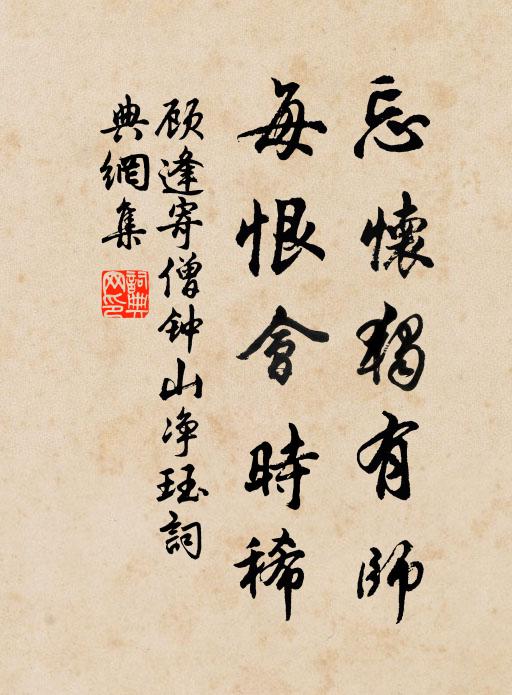 忘懷獨有師
每恨會時稀
顾逢寄僧钟山净珏詞
典網集
詞典网印